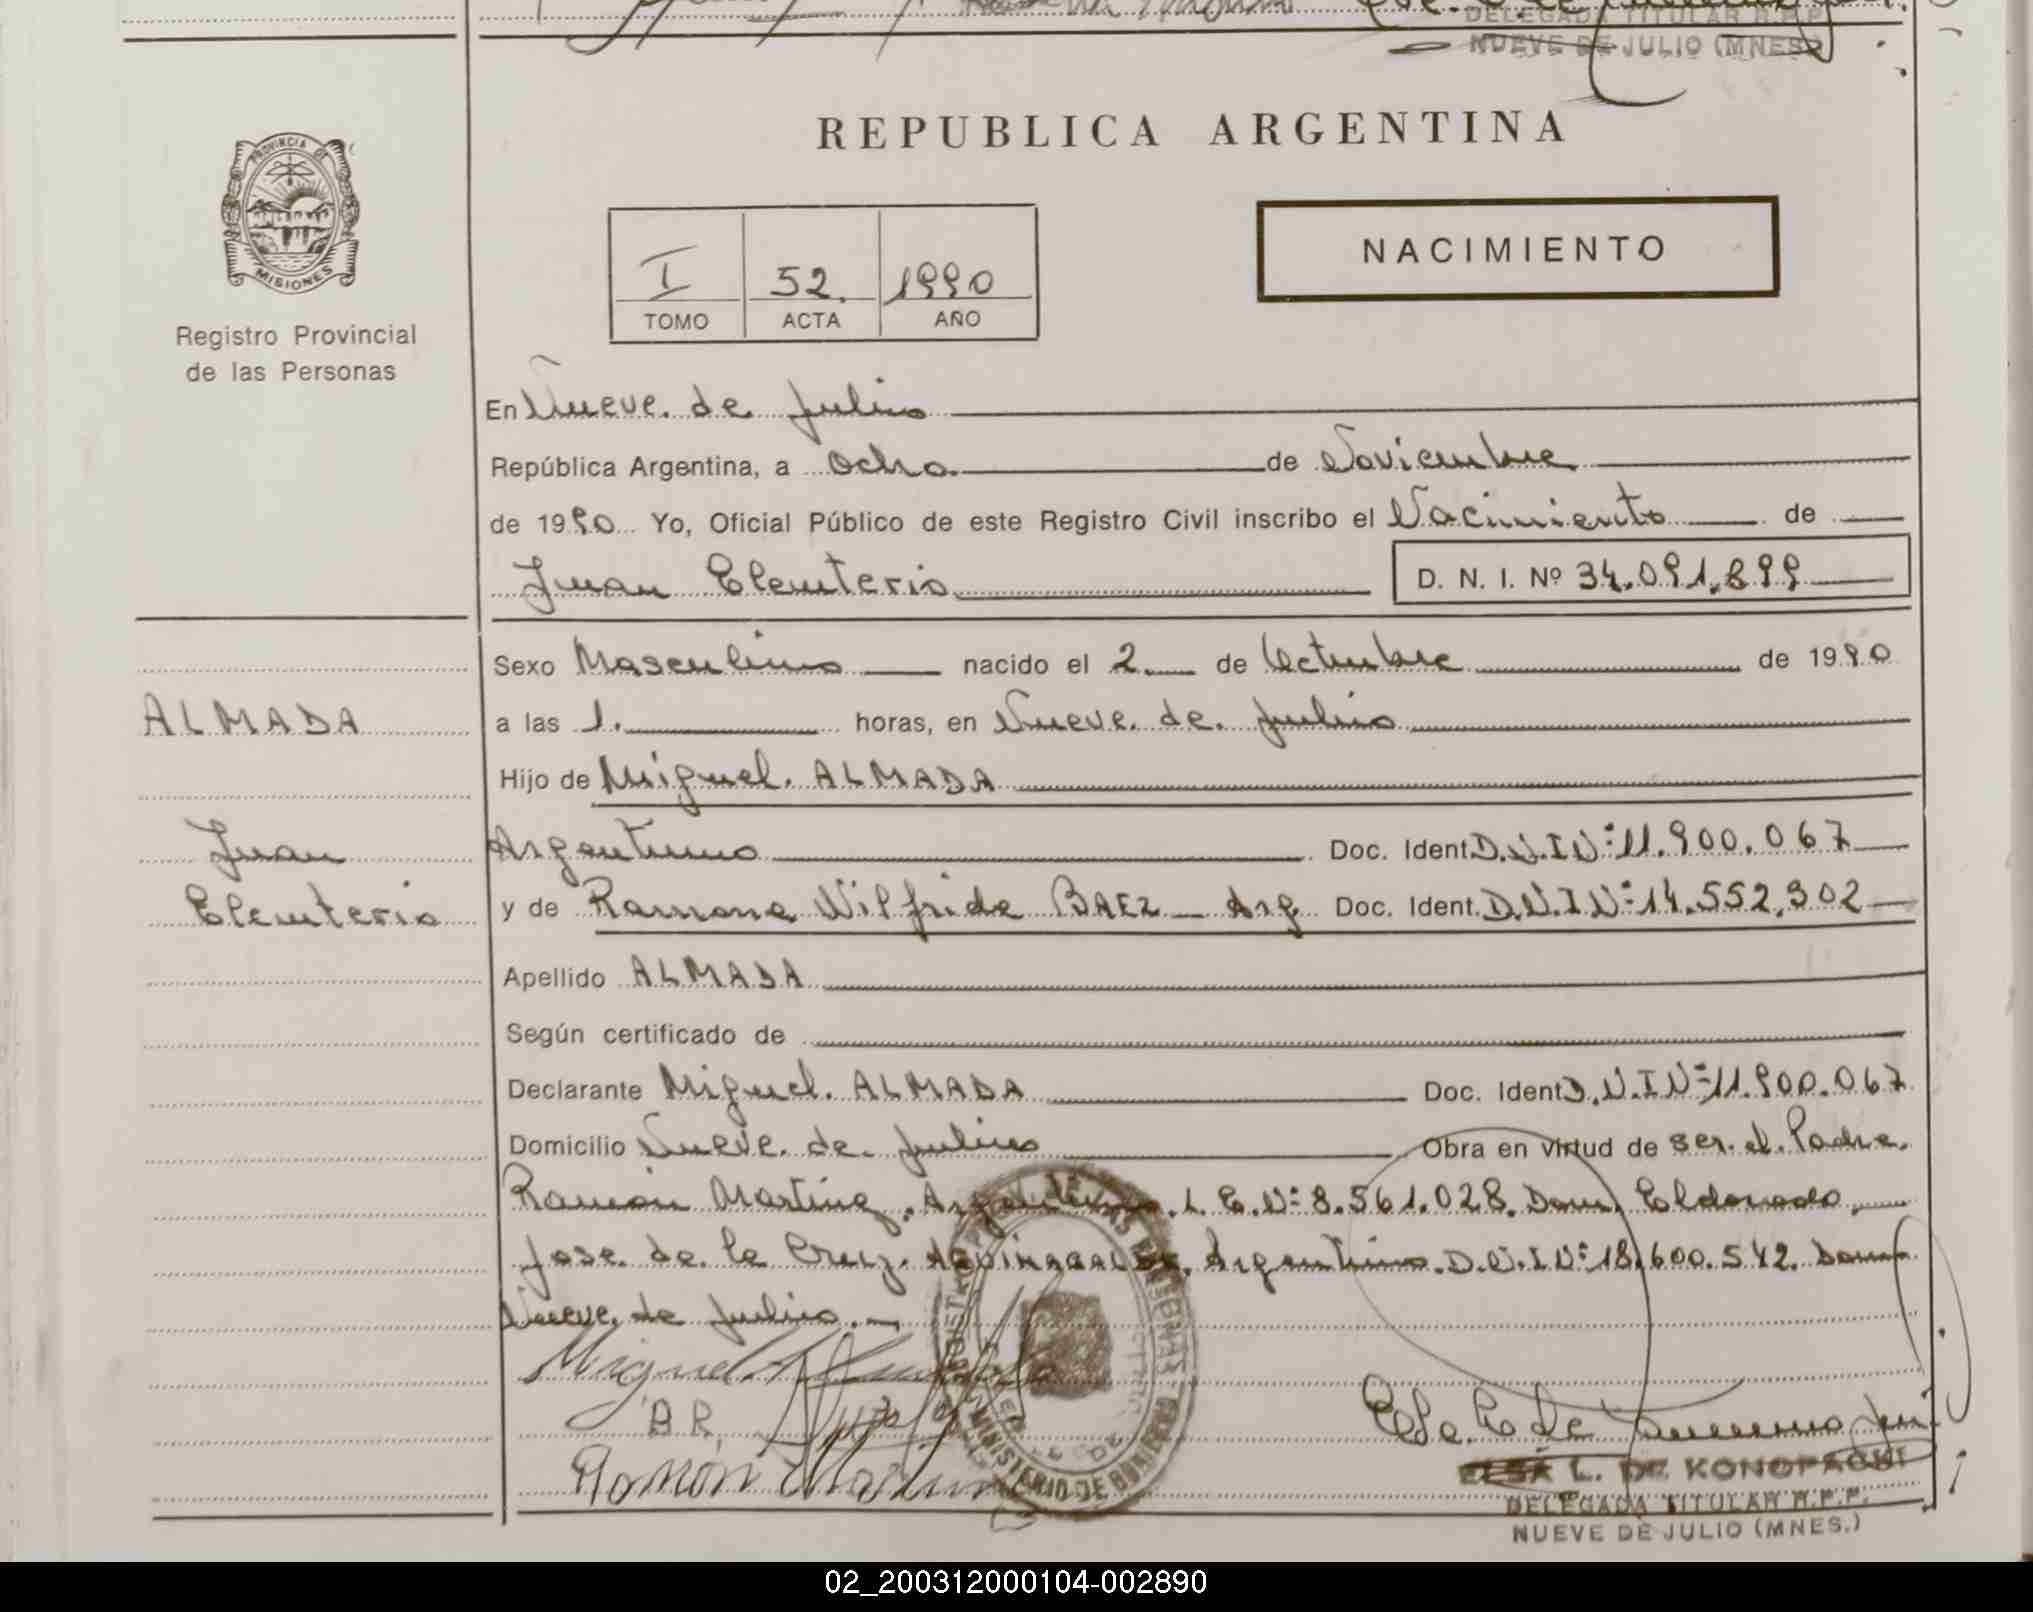 DELEGADA TITULAR R.P.P.
NUEVE DE JULIO (MNES.)
REPUBLICA ARGENTINA
PROVINCIA DE
MISIONES
Registro Provincial
de las Personas
I 52. 1990
TOMO ACTA AÑO
NACIMIENTO
En Nueve de Julio
República Argentina, a Ocho de Noviembre
de 1990 Yo, Oficial Público de este Registro Civil inscribo el Nacimiento de
Juan Eleuterio D. N. I. Nº 34.091.899
Sexo Masculino nacido el 2 de Octubre de 1990
ALMADA
a las 1. horas, en Nueve de Julio
Hijo de Miguel ALMADA
Juan
Argentino Doc. Ident. D.N.I Nº 11.900.067
Eleuterio
y de Ramona Wilfrida BAEZ - Arg Doc. Ident. D.N.I Nº 14.552.302
Apellido ALMADA
Según certificado de
Declarante Miguel ALMADA Doc. Ident D.N.I Nº 11.900.067
Domicilio Nueve de Julio Obra en virtud de ser el Padre.
Ramón Martinez, Argentino. L.E.Nº 8.561.028. Dom. Eldorado
Jose de la Cruz Argentino. D.N.I Nº 18.600.542. Dom
Nueve de Julio. -
Miguel Almada
B R
Ramon
ELSA L. DE KONOPACKI
DELEGADA TITULAR R.P.P.
NUEVE DE JULIO (MNES.)
MINISTERIO DE GOBIERNO
02_200312000104-002890